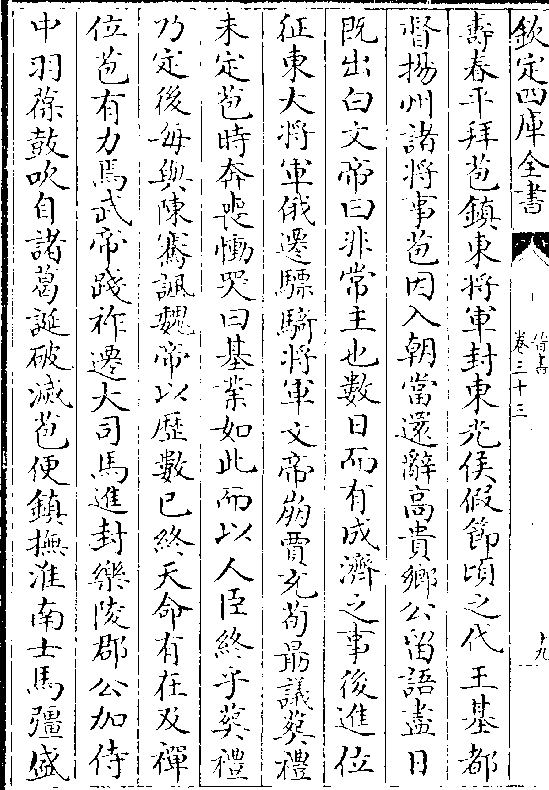 欽定四庫全書
晉書
卷三十三
十九
壽春平拜苞鎮東將軍封東光侯假節頃之代王基都
督揚州諸將事苞因入朝當還辭高貴鄉公留語盡日
既出白文帝曰非常主也數日而有成濟之事後進位
征東大將軍俄遷驃騎將軍文帝崩賈充荀勗議葬禮
未定苞時奔喪慟哭曰基業如此而以人臣終乎葬禮
乃定後每與陳騫諷魏帝以歷數已終天命有在及禪
位苞有力焉武帝踐祚遷大司馬進封樂陵郡公加侍
中羽葆鼓吹自諸葛誕破滅苞便鎮撫淮南士馬彊盛